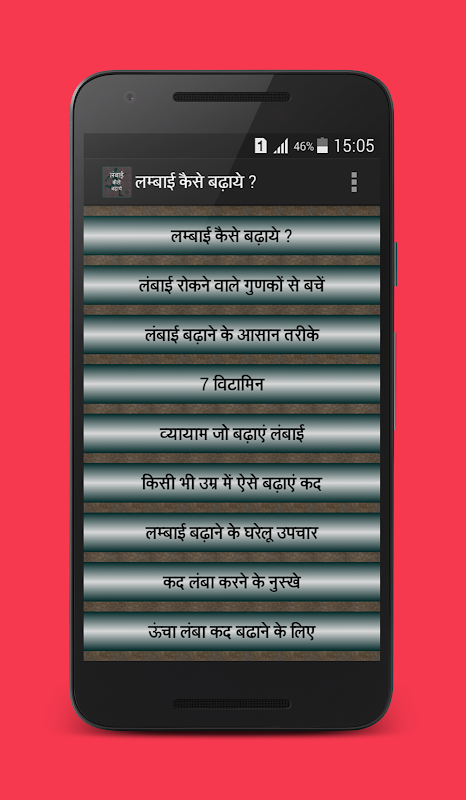 1 46% 15:05
लंबाई
कैसे
बढ़ाये
लम्बाई कैसे बढ़ाये ?
लम्बाई कैसे बढ़ाये ?
लंबाई रोकने वाले गुणकों से बचें
लंबाई बढ़ाने के आसान तरीके
7 विटामिन
व्यायाम जो बढ़ाएं लंबाई
किसी भी उम्र में ऐसे बढ़ाएं कद
लम्बाई बढ़ाने के घरेलू उपचार
कद लंबा करने के नुस्खे
ऊंचा लंबा कद बढाने के लिए